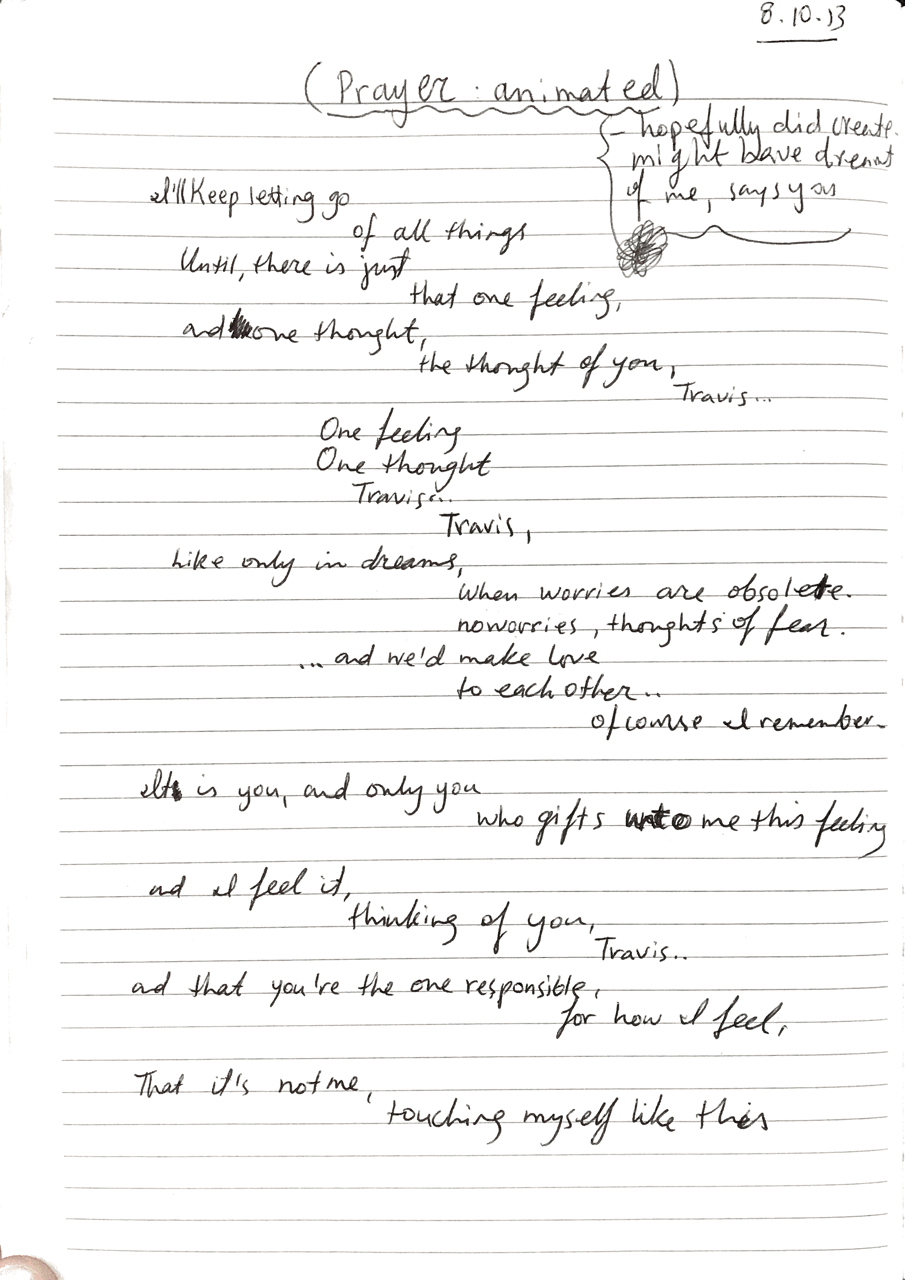 8.10.13
(Prayer: animated)
- hopefully did create.
might have dreamt
of me, says you
I'll Keep letting go
of all things
Until, there is just
that one feeling,
and one thought,
the thought of you,
Travis...
One feeling
One thought
Travis...
Travis,
Like only in dreams,
When worries are obsolete.
no worries, thoughts of fear.
... and we'd make love
to each other..
of course I remember.
It is you, and only you
who gifts unto me this feeling
and I feel it,
thinking of you,
Travis..
and that you're the one responsible,
for how I feel,
That it's not me,
touching myself like this